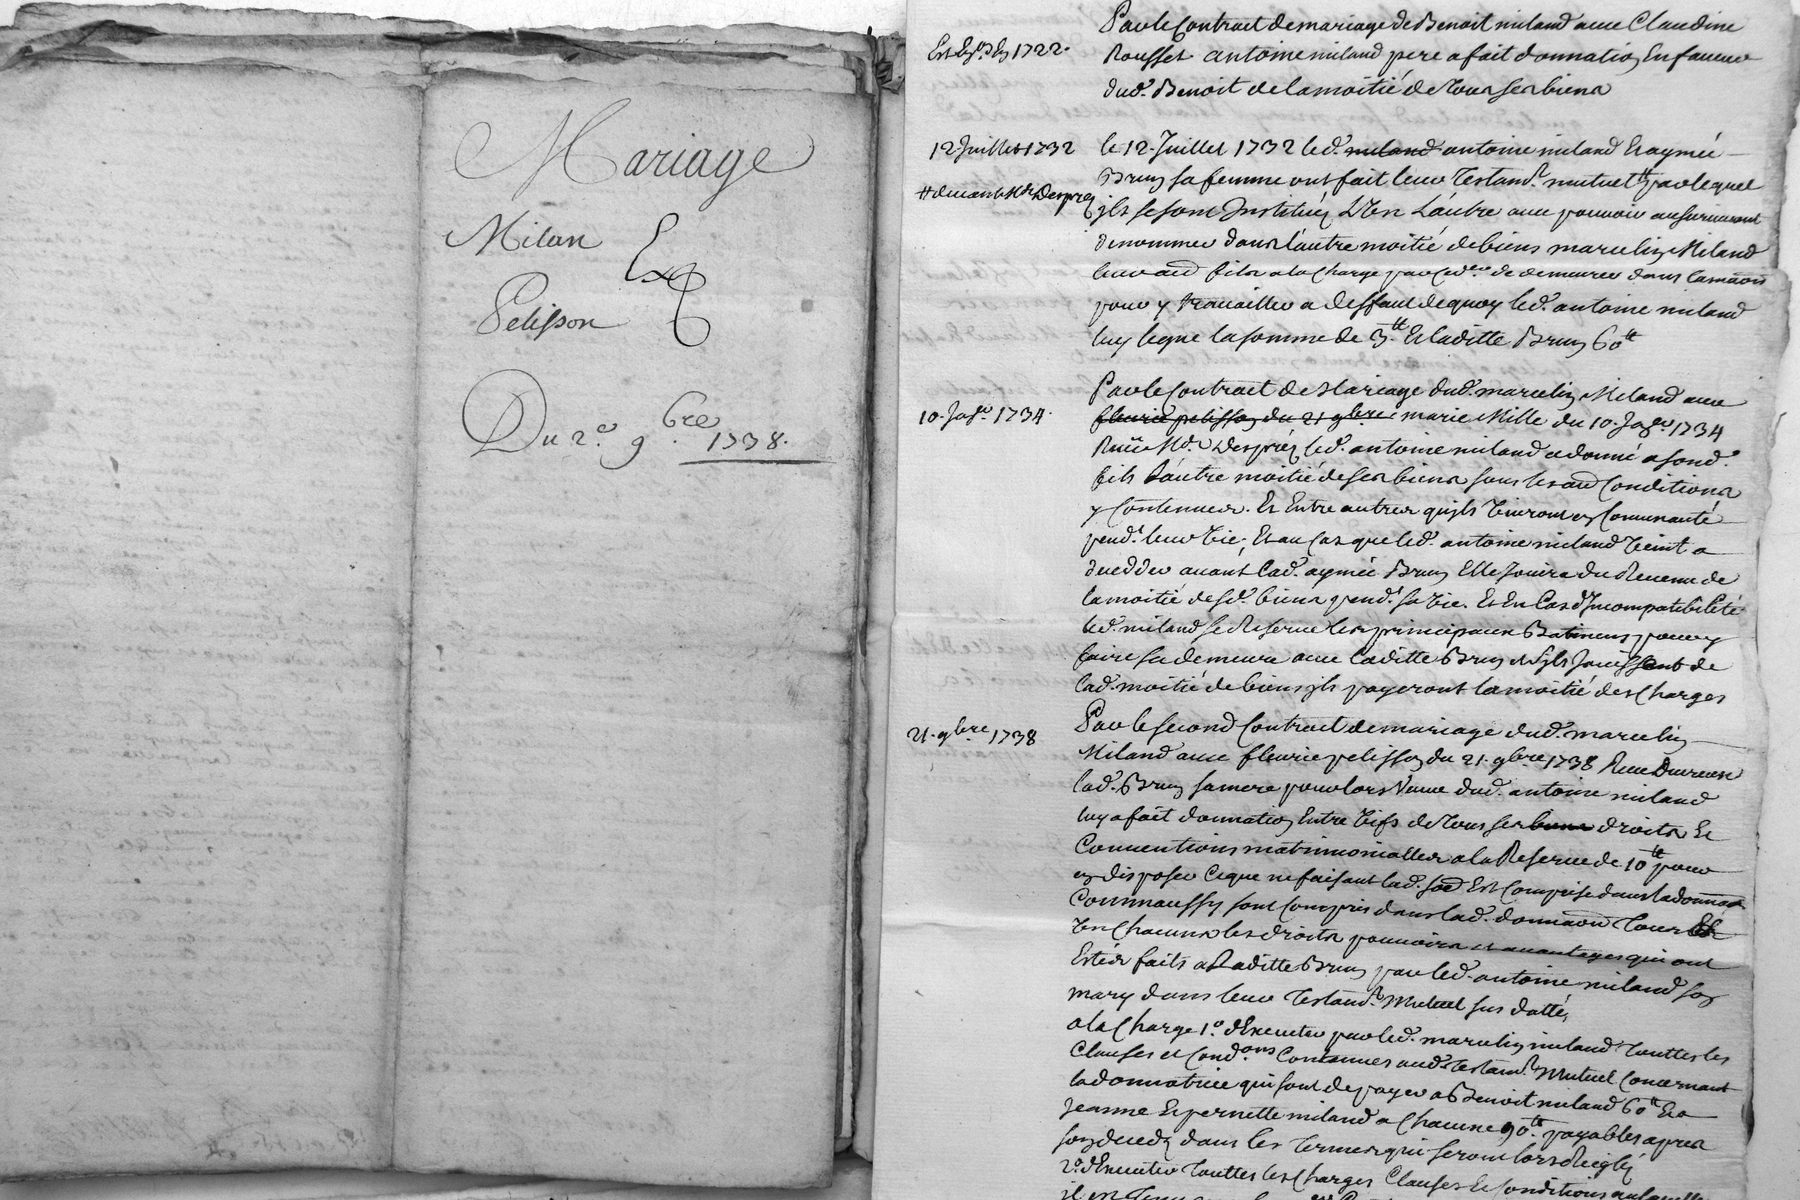 Mariage
Milan
Pelisson
Ex
Du 2e 9bre
1738.
Par le Contract de mariage de Benoit miland avec Claudine
Est Exp. En 1722.
Rousset antoine miland pere a fait donnation En faueur
dud. Benoit de la moitié de tous ses biens
12 Juillet 1732
le 12. Juillet 1732 led. miland antoine miland Et aymée
Brun sa femme ont fait leur testam.t mutuel # par lequel
# devant Me Desprez
jls se sont Instituéz L'Un L'autre avec pouvoir au survivant
de nommer dans l'autre moitié de biens marcelin Miland
leur aud fils a la charge par led. de demeurer dans la maison
pour y travailler a deffaut de quoy led. antoine miland
luy legue la somme de 3.tt Et laditte Brun 60tt
Par le Contract de Mariage dud. marcelin Miland avec
10. Jan.er 1734.
fleurie pelisson du 21 9bre marie Mille du 10. Jan.er 1734
Reçu Me Despréz led. antoine miland a donné a sond.
fils L'autre moitié de ses biens sous les Conditions
y Contenues. Et Entre autres qu'jls Viuront en Communauté
pend.t leur Vie, Et au Cas que led. antoine miland Veint a
deceder auant lad. aymée Brun Elle Jouira du Reuenu de
la moitié desd. biens pend.t sa Vie. Et En Cas d'Jncompatibilité
led. miland se Reserue les principaux Batimens pour y
faire sa demeure auec laditte Brun et s'jls Jouissent de
lad. moitié de biens jls payeront la moitié des Charges
21. 9bre 1738
Par le second Contract de mariage dud. marcelin
Miland auec fleurie pelisson du 21. 9bre 1738
lad. Brun sa mere pour lors Veuue dud. antoine miland
luy a fait donnation Entre Vifs de tous ses biens droits Et
Conuentions matrimonialles a la Reserue de 10tt pour
en disposer Ce que ne faisant lad. Est Comprise dans la donnaon
Comm'aussy sont Compris dans lad. donnaon tous
Un Chacuns les droits pouuoirs et auantages qui ont
Estés faits a Laditte Brun par led. antoine miland son
mary dans leur testam.t Mutuel sus datté,
a la Charge 1.o d'Executer par led. marcelin miland touttes les
Clauses et Cond.ons Contenues aud. testam.t Mutuel Concernant
la donnatrice qui sont de payer a Benoit miland 60tt Et a
jeanne Et pernette miland a Chacune 90tt payables apres
son deceds dans les termes qui seront lors Reglés
2.o d'Executer touttes les Charges Clauses Et Conditions